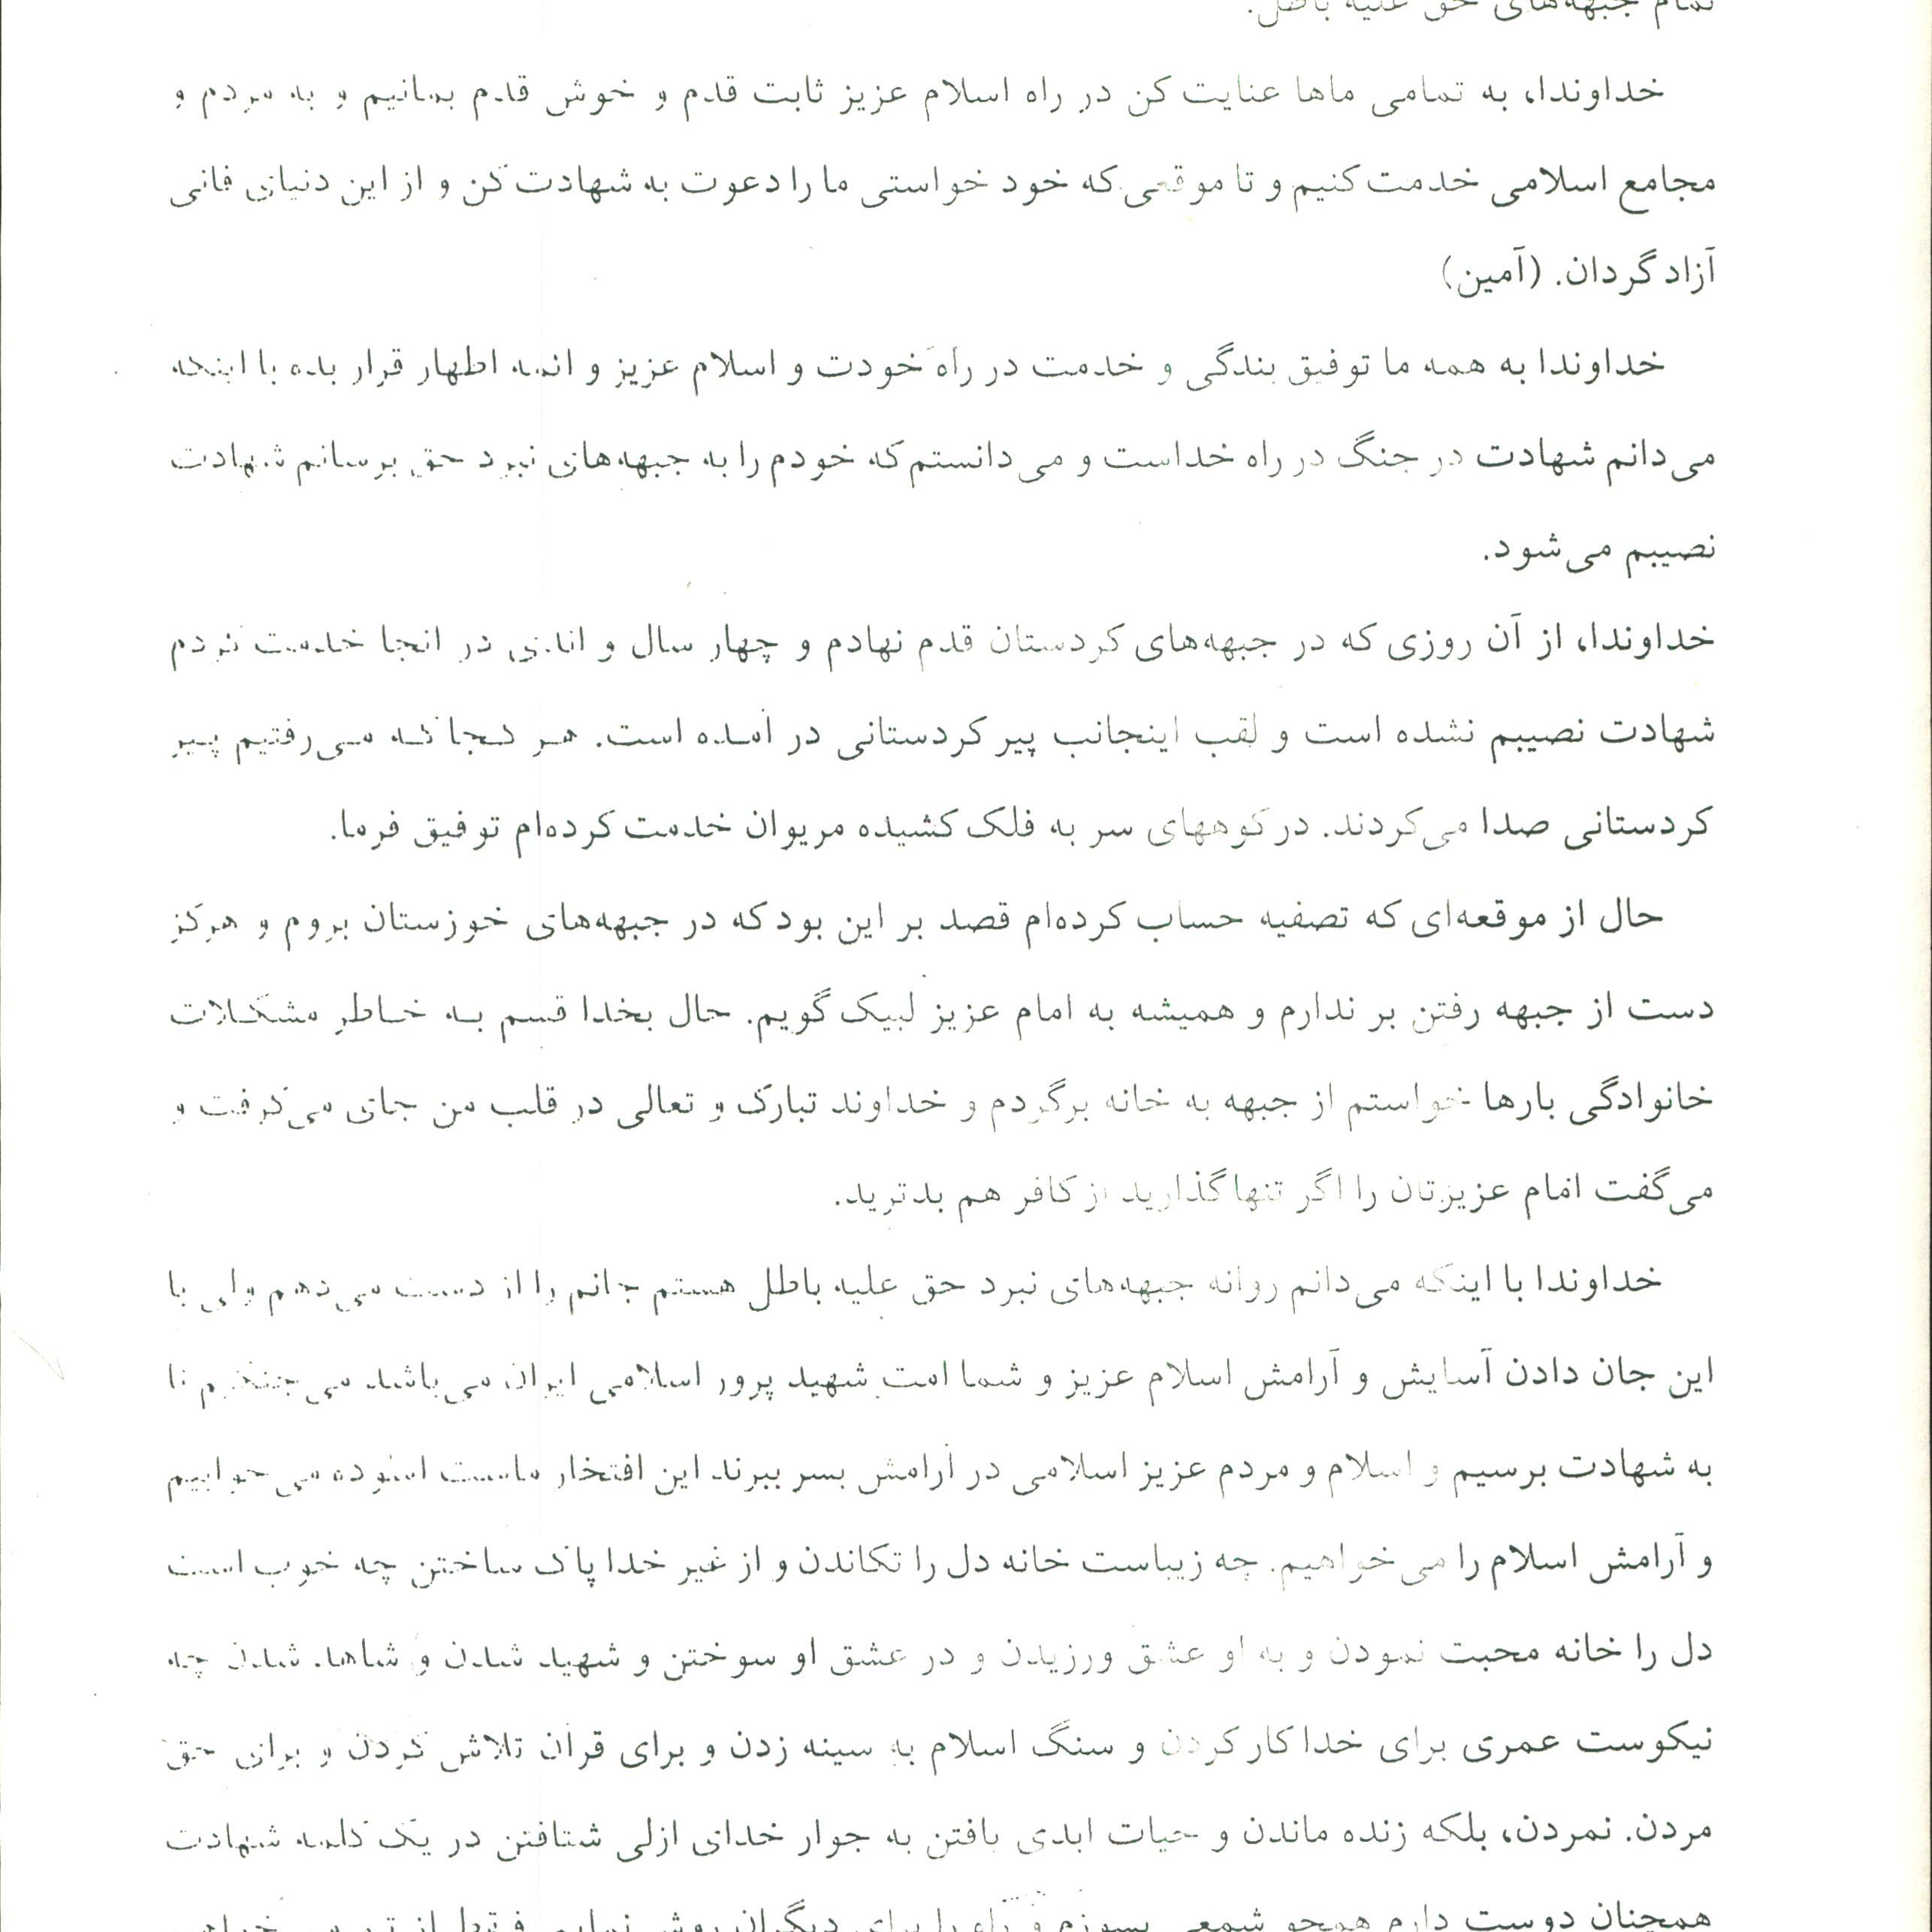 تمام جبهه‌های حق علیه باطل.
خداوندا، به تمامی ماها عنایت کن در راه اسلام عزیز ثابت قدم و خوش قدم بمانیم و به مردم و
مجامع اسلامی خدمت کنیم و تا موقعی که خود خواستی ما را دعوت به شهادت کن و از این دنیای فانی
آزاد گردان. (آمین)
خداوندا به همه ما توفیق بندگی و خدمت در راه خودت و اسلام عزیز و ائمه اطهار قرار بده با اینکه
می‌دانم شهادت در جنگ در راه خداست و می‌دانستم که خودم را به جبهه‌های نبرد حق برسانم شهادت
نصیبم می‌شود.
خداوندا، از آن روزی که در جبهه‌های کردستان قدم نهادم و چهار سال و اندی در انجا خدمت کردم
شهادت نصیبم نشده است و لقب اینجانب پیر کردستانی در آمده است. هر کجا که می‌رفتیم پیر
کردستانی صدا می‌کردند. در کوههای سر به فلک کشیده مریوان خدمت کرده‌ام توفیق فرما.
حال از موقعه‌ای که تصفیه حساب کرده‌ام قصد بر این بود که در جبهه‌های خوزستان بروم و هرگز
دست از جبهه رفتن بر ندارم و همیشه به امام عزیز لبیک گویم. حال بخدا قسم به خاطر مشکلات
خانوادگی بارها خواستم از جبهه به خانه برگردم و خداوند تبارک و تعالی در قلب من جای می‌گرفت و
می‌گفت امام عزیزتان را اگر تنها گذارید از کافر هم بدترید.
خداوندا با اینکه می‌دانم روانه جبهه‌های نبرد حق علیه باطل هستم جانم را از دست می‌دهم ولی با
این جان دادن آسایش و آرامش اسلام عزیز و شما امت شهید پرور اسلامی ایران می‌باشد می‌جنگیم تا
به شهادت برسیم و اسلام و مردم عزیز اسلامی در آرامش بسر ببرند این افتخار ماست آسوده می‌خوابیم
و آرامش اسلام را می‌خواهیم. چه زیباست خانه دل را تکاندن و از غیر خدا پاک ساختن چه خوب است
دل را خانه محبت نمودن و به او عشق ورزیدن و در عشق او سوختن و شهید شدن و شاهد شدن چه
نیکوست عمری برای خدا کار کردن و سنگ اسلام به سینه زدن و برای قرآن تلاش کردن و برای حق
مردن. نمردن، بلکه زنده ماندن و حیات ابدی یافتن به جوار خدای ازلی شتافتن در یک کلمه شهادت
همچنان دوست دارم همچو شمعی بسوزم و راه را برای دیگران روشن نمایم